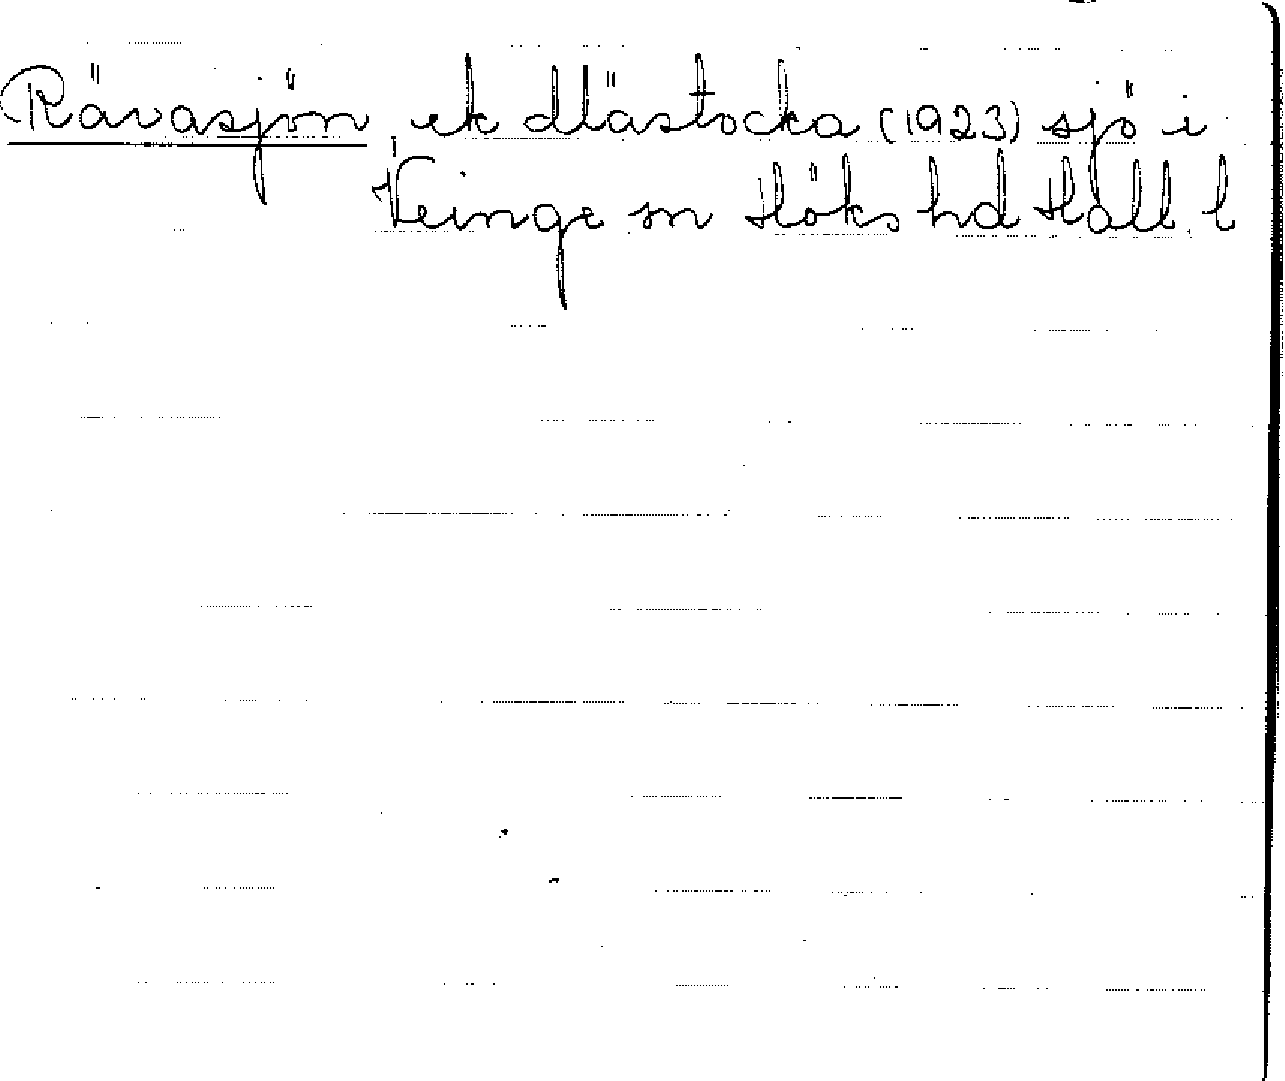 Rävasjön, ek Mästocka (1923) sjö i
Veinge sn Höks hd Hall. l